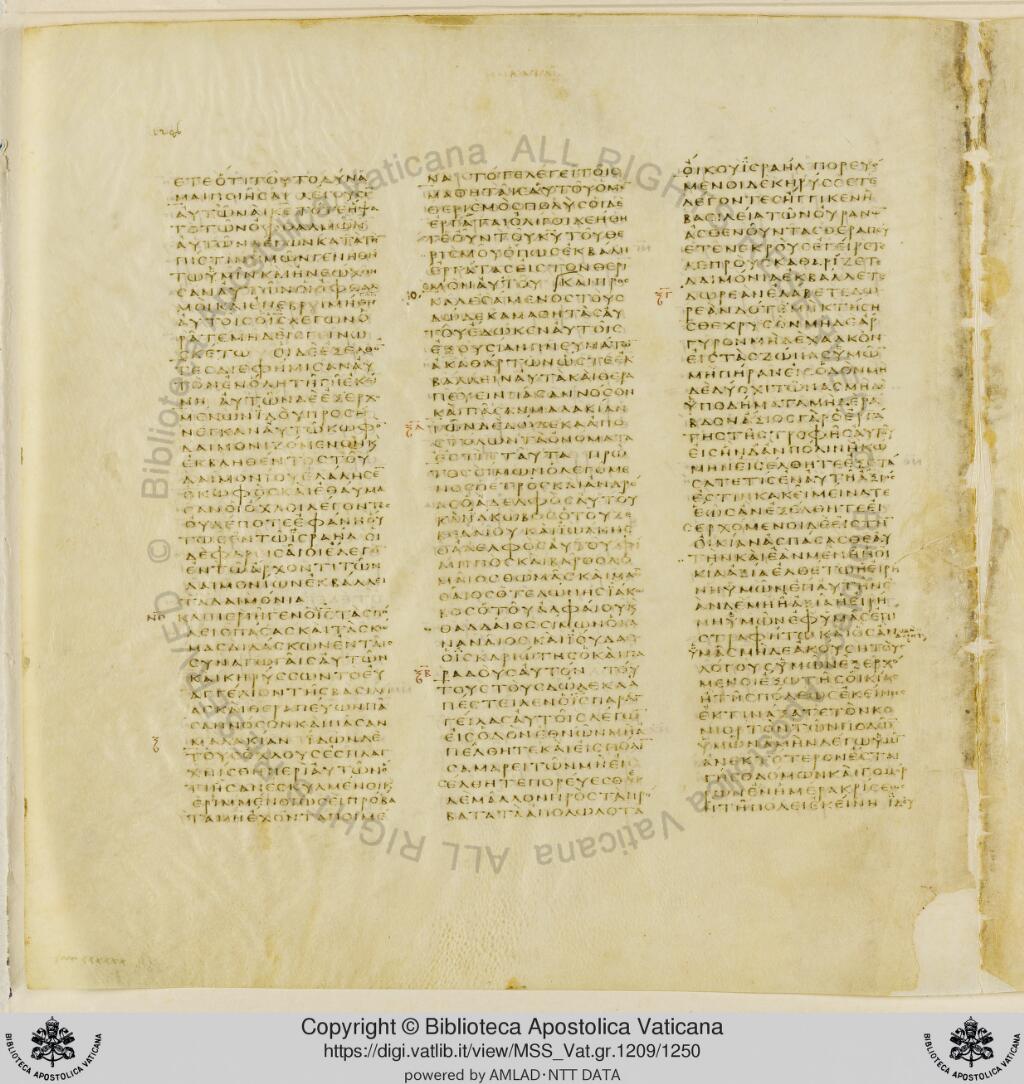 ΕΤΕΟΤΙΤΟΥΤΟΔΥΝΑ
ΜΑΙΠΟΙΗΣΑΙΛΕΓΟΥΣΙ
ΑΥΤΩΝΑΙΚΕΤΟΤΕΗΨΑ
ΤΟΤΩΝΟΦΘΑΛΜΩΝ
ΑΥΤΩΝΛΕΓΩΝΚΑΤΑΤΗ
ΠΙΣΤΙΝΥΜΩΝΓΕΝΗΘΗ
ΤΩΥΜΙΝΚΑΙΗΝΕΩΧΘΗ
ΣΑΝΑΥΤΩΝΟΙΟΦΘΑΛ
ΜΟΙΚΑΙΕΝΕΒΡΙΜΗΘΗ
ΑΥΤΟΙΣΟΙΣΛΕΓΩΝΟ
ΡΑΤΕΜΗΔΕΙΣΓΙΝΩ
ΣΚΕΤΩ ΟΙΔΕΕΞΕΛΘΟ
ΤΕΣΔΙΕΦΗΜΙΣΑΝΑΥ
ΤΟΝΕΝΟΛΗΤΗΓΗΕΚΕΙ
ΝΗ ΑΥΤΩΝΔΕΕΞΕΡΧΟ
ΜΕΝΩΝΙΔΟΥΠΡΟΣΗ
ΝΕΓΚΑΝΑΥΤΩΚΩΦΟ
ΔΑΙΜΟΝΙΖΟΜΕΝΟΝΚ
ΕΚΒΛΗΘΕΝΤΟΣΤΟΥ
ΔΑΙΜΟΝΙΟΥΕΛΑΛΗΣΕ
ΟΚΩΦΟΣΚΑΙΕΘΑΥΜΑ
ΣΑΝΟΙΟΧΛΟΙΛΕΓΟΝΤΕ
ΟΥΔΕΠΟΤΕΕΦΑΝΗΟΥ
ΤΩΣΕΝΤΩΙΣΡΑΗΛΟΙ
ΔΕΦΑΡΙΣΑΙΟΙΕΛΕΓΟ
ΕΝΤΩΑΡΧΟΝΤΙΤΩΝ
ΔΑΙΜΟΝΙΩΝΕΚΒΑΛΛΕΙ
ΤΑΔΑΙΜΟΝΙΑ
ΚΑΙΠΕΡΙΗΓΕΝΟΙΣΤΑΣΠΟ
ΛΕΙΣΠΑΣΑΣΚΑΙΤΑΣΚΩ
ΜΑΣΔΙΔΑΣΚΩΝΕΝΤΑΙΣ
ΣΥΝΑΓΩΓΑΙΣΑΥΤΩΝ
ΚΑΙΚΗΡΥΣΣΩΝΤΟΕΥ
ΑΓΓΕΛΙΟΝΤΗΣΒΑΣΙΛΕΙ
ΑΣΚΑΙΘΕΡΑΠΕΥΩΝΠΑ
ΣΑΝΝΟΣΟΝΚΑΙΠΑΣΑΝ
ΜΑΛΑΚΙΑΝ ΙΔΩΝΔΕ
ΤΟΥΣΟΧΛΟΥΣΕΣΠΛΑΓ
ΧΝΙΣΘΗΠΕΡΙΑΥΤΩΝΟ
ΤΙΗΣΑΝΕΣΚΥΛΜΕΝΟΙΚ
ΕΡΙΜΜΕΝΟΙΩΣΕΙΠΡΟΒΑ
ΤΑΜΗΕΧΟΝΤΑΠΟΙΜΕ
ΝΑ ΤΟΤΕΛΕΓΕΙΤΟΙΣ
ΜΑΘΗΤΑΙΣΑΥΤΟΥΟΜ
ΘΕΡΙΣΜΟΣΠΟΛΥΣΟΙΔΕ
ΕΡΓΑΤΑΙΟΛΙΓΟΙΔΕΗΘΗ
ΤΕΟΥΝΤΟΥΚΥΤΟΥΘΕ
ΡΙΣΜΟΥΟΠΩΣΕΚΒΑΛΗ
ΕΡΓΑΤΑΣΕΙΣΤΟΝΘΕΡΙ
ΜΟΝΑΥΤΟΥ ΚΑΙΠΡΟΣ
ΚΑΛΕΣΑΜΕΝΟΣΤΟΥΣ
ΔΩΔΕΚΑΜΑΘΗΤΑΣΑΥ
ΤΟΥΕΔΩΚΕΝΑΥΤΟΙΣ
ΕΞΟΥΣΙΑΝΠΝΕΥΜΑΤΩ
ΑΚΑΘΑΡΤΩΝΩΣΤΕΕΚ
ΒΑΛΛΕΙΝΑΥΤΑΚΑΙΘΕΡΑ
ΠΕΥΕΙΝΠΑΣΑΝΝΟΣΟΝ
ΚΑΙΠΑΣΑΝΜΑΛΑΚΙΑΝ
ΤΩΝΔΕΔΩΔΕΚΑΑΠΟ
ΣΤΟΛΩΝΤΑΟΝΟΜΑΤΑ
ΕΣΤΙΝΤΑΥΤΑ ΠΡΩ
ΤΟΣΣΙΜΩΝΟΛΕΓΟΜΕ
ΝΟΣΠΕΤΡΟΣΚΑΙΑΝΔΡΕ
ΑΣΟΑΔΕΛΦΟΣΑΥΤΟΥ
ΚΑΙΙΑΚΩΒΟΣΟΤΟΥΖΕ
ΒΕΔΑΙΟΥΚΑΙΙΩΑΝΗΣ
ΟΑΔΕΛΦΟΣΑΥΤΟΥΦΙ
ΛΙΠΠΟΣΚΑΙΒΑΡΘΟΛΟ
ΜΑΙΟΣΘΩΜΑΣΚΑΙΜΑ
ΘΘΑΙΟΣΟΤΕΛΩΝΗΣΙΑΚΩ
ΒΟΣΟΤΟΥΑΛΦΑΙΟΥΚ
ΘΑΔΔΑΙΟΣΣΙΜΩΝΟΚΑ
ΝΑΝΑΙΟΣΚΑΙΙΟΥΔΑΣ
ΟΙΣΚΑΡΙΩΤΗΣΟΚΑΙΠΑ
ΡΑΔΟΥΣΑΥΤΟΝ ΤΟΥ
ΤΟΥΣΤΟΥΣΔΩΔΕΚΑΑ
ΠΕΣΤΕΙΛΕΝΟΙΣΠΑΡΑΓ
ΓΕΙΛΑΣΑΥΤΟΙΣΛΕΓΩ
ΕΙΣΟΔΟΝΕΘΝΩΝΜΗΑ
ΠΕΛΘΗΤΕΚΑΙΕΙΣΠΟΛΙ
ΣΑΜΑΡΕΙΤΩΝΜΗΕΙΣ
ΕΛΘΗΤΕΠΟΡΕΥΕΣΘΕ
ΔΕΜΑΛΛΟΝΠΡΟΣΤΑΠΡΟ
ΒΑΤΑΤΑΑΠΟΛΩΛΟΤΑ
ΟΙΚΟΥΙΣΡΑΗΛ ΠΟΡΕΥΟ
ΜΕΝΟΙΔΕΚΗΡΥΣΣΕΤΕ
ΛΕΓΟΝΤΕΣΗΓΓΙΚΕΝΗ
ΒΑΣΙΛΕΙΑΤΩΝΟΥΡΑΝΩ
ΑΣΘΕΝΟΥΝΤΑΣΘΕΡΑΠΕΥ
ΕΤΕΝΕΚΡΟΥΣΕΓΕΙΡΕΤΕ
ΛΕΠΡΟΥΣΚΑΘΑΡΙΖΕΤΕ
ΔΑΙΜΟΝΙΑΕΚΒΑΛΛΕΤΕ
ΔΩΡΕΑΝΕΛΑΒΕΤΕΔΩ
ΡΕΑΝΔΟΤΕΜΗΚΤΗΣΗ
ΣΘΕΧΡΥΣΟΝΜΗΔΕΑΡ
ΓΥΡΟΝΜΗΔΕΧΑΛΚΟΝ
ΕΙΣΤΑΣΖΩΝΑΣΥΜΩ
ΜΗΠΗΡΑΝΕΙΣΟΔΟΝΜΗ
ΔΕΔΥΟΧΙΤΩΝΑΣΜΗΔΕ
ΥΠΟΔΗΜΑΤΑΜΗΔΕΡΑ
ΒΔΟΝΑΞΙΟΣΓΑΡΟΕΡΓΑ
ΤΗΣΤΗΣΤΡΟΦΗΣΑΥΤΟΥ
ΕΙΣΗΝΔΑΝΠΟΛΙΝΗΚΩ
ΜΗΝΕΙΣΕΛΘΗΤΕΕΞΕΤΑ
ΣΑΤΕΤΙΣΕΝΑΥΤΗΑΞΙΟΣ
ΕΣΤΙΝΚΑΚΕΙΜΕΙΝΑΤΕ
ΕΩΣΑΝΕΞΕΛΘΗΤΕΕΙΣ
ΕΡΧΟΜΕΝΟΙΔΕΕΙΣΤΗ
ΟΙΚΙΑΝΑΣΠΑΣΑΣΘΕΑΥ
ΤΗΝΚΑΙΕΑΝΜΕΝΗΗΟΙ
ΚΙΑΑΞΙΑΕΛΘΕΤΩΗΕΙΡΗ
ΝΗΥΜΩΝΕΠΑΥΤΗΝΕ
ΑΝΔΕΜΗΗΑΞΙΑΗΕΙΡΗ
ΝΗΥΜΩΝΕΦΥΜΑΣΕΠΙ
ΣΤΡΑΦΗΤΩΚΑΙΟΣΑΝ
ΥΜΑΣΜΗΔΕΑΚΟΥΣΗΤΟΥΣ
ΛΟΓΟΥΣΥΜΩΝΕΞΕΡΧΟ
ΜΕΝΟΙΕΞΩΤΗΣΟΙΚΙΑΣ
ΗΤΗΣΠΟΛΕΩΣΕΚΕΙΝΗΣ
ΕΚΤΙΝΑΞΑΤΕΤΟΝΚΟ
ΝΙΟΡΤΟΝΤΩΝΠΟΔΩ
ΥΜΩΝΑΜΗΝΛΕΓΩΥΜΙ
ΑΝΕΚΤΟΤΕΡΟΝΕΣΤΑΙ
ΓΗΣΟΔΟΜΩΝΚΑΙΓΟΜΟΡ
ΡΩΝΕΝΗΜΕΡΑΚΡΙΣΕΩΣ
ΗΤΗΠΟΛΕΙΕΚΕΙΝΗ ΙΔΟΥ
© Biblioteca Apostolica Vaticana ALL RIGHTS RESERVED
BIBLIOTECA APOSTOLICA VATICANA
Copyright © Biblioteca Apostolica Vaticana
https://digi.vatlib.it/view/MSS_Vat.gr.1209/1250
powered by AMLAD·NTT DATA
BIBLIOTECA APOSTOLICA VATICANA